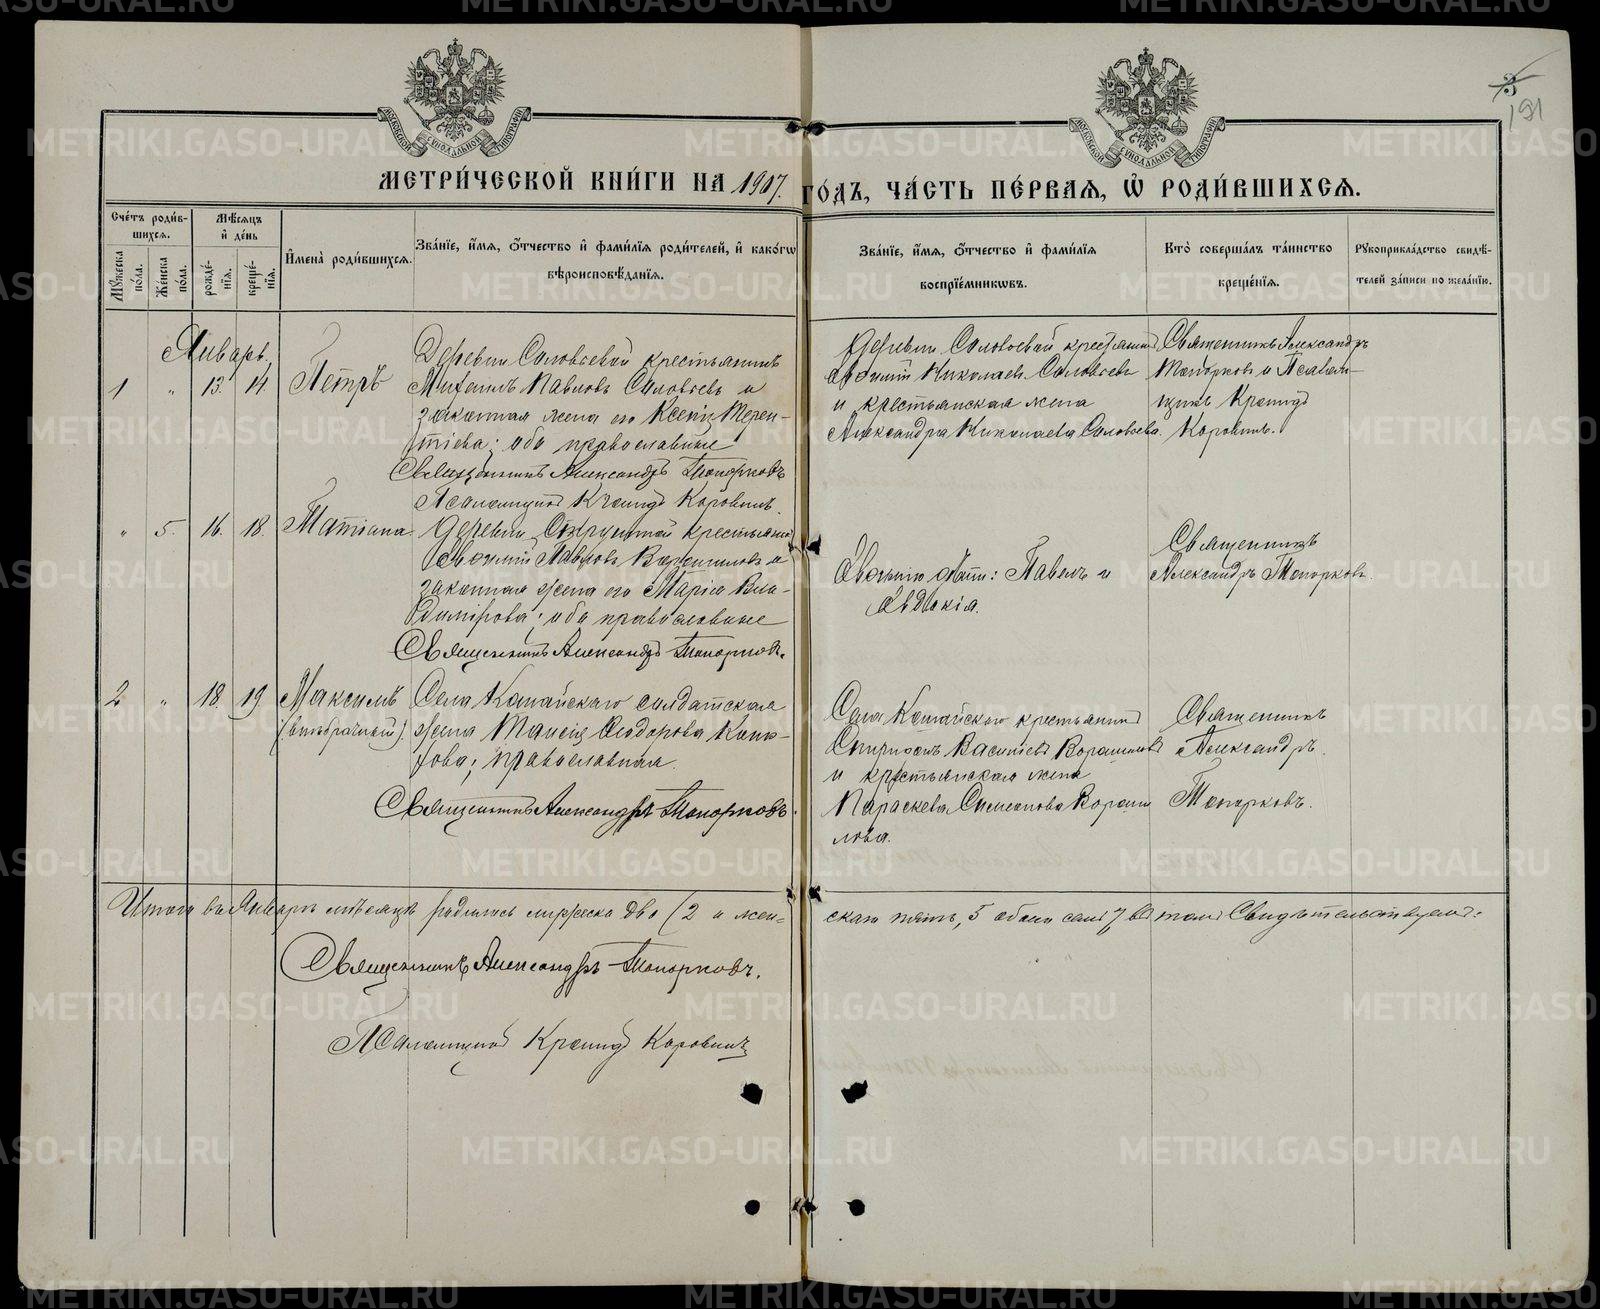 МЕТРИ́ЧЕСКОЙ КНИ́ГИ НА 1917 ГО́ДЪ, ЧА́СТЬ ПЕ́РВАЯ, Ѽ РОДИ́ВШИХСЯ.
191
Сче́тъ роди́вшихся.
Мѣ́сяцъ и де́нь
Мꙋ́жеска по́ла.
Же́нска по́ла.
рожде́нїя.
креще́нїя.
Имена̀ роди́вшихся.
Зва́нїе, и́мя, ѻ́тчество и фами́лїя роди́телей, и како́гѡ вѣроисповѣ́данїя.
Зва́нїе, и́мя, ѻ́тчество и фами́лїя воспрїе́мникѡвъ.
Кто̀ соверша́лъ та́инство креще́нїя.
Рꙋкоприкла́дство свидѣ́телей за́писи по жела́нїю.
Январь.
1 " 13. 14 Петръ
Деревни Соловьевой крестьянинъ
Михаилъ Павловъ Соловьевъ и
законная жена его Ксенія Терен-
тіева; оба православные
Священникъ Александръ Топорковъ
Псаломщикъ Кронидъ Коровинъ.
Деревни Соловьевой крестьянинъ
Николаевъ Соловьевъ
и крестьянская жена
Александра Николаева Соловьева.
Священникъ Александръ
Топорковъ и Псалом-
щикъ Кронидъ
Коровинъ.
" 5. 16. 18. Татіана
Деревни крестьянинъ
Павловъ Ворошиловъ и
законная жена его Марія Вла-
димірова; оба православные
Священникъ Александръ Топорковъ.
Павелъ и
Евдокія.
Священникъ
Александръ Топорковъ.
2 " 18. 19. Максимъ
(внебрачный)
Села Катайскаго солдатская
жена Таисія Ѳеодорова
православная.
Священникъ Александръ Топорковъ.
Села Катайскаго крестьянинъ
Спиридонъ Васильевъ Ворошиловъ
и крестьянская жена
Параскева Симеонова Вороши
лова.
Священникъ
Александръ
Топорковъ.
Итого въ Январѣ мѣсяцѣ родилось мужеска два (2 и жен-
скаго пять, 5 обоего семь 7, въ томъ Свидѣтельствуемъ:
Священникъ Александръ Топорковъ.
Псаломщикъ Кронидъ Коровинъ
METRIKI.GASO-URAL.RU